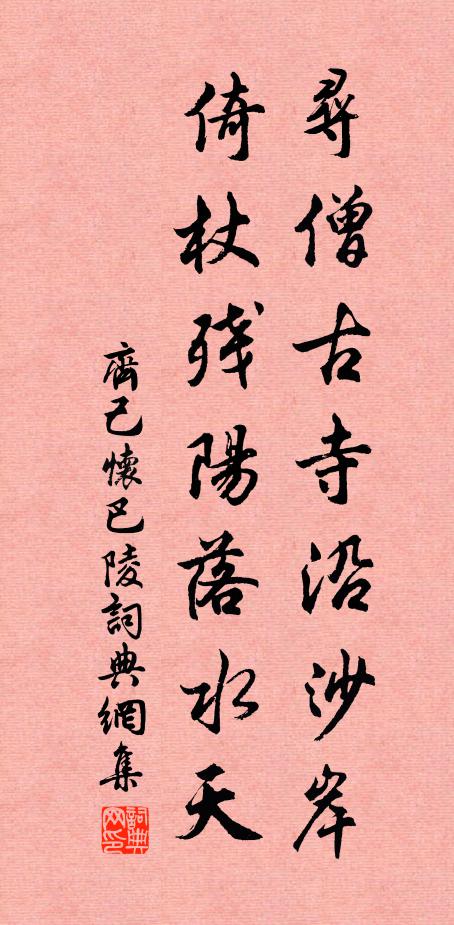 尋僧古寺沿沙岸
倚杖残陽落水天
齊己懷巴陵詞典網集
詞典网印